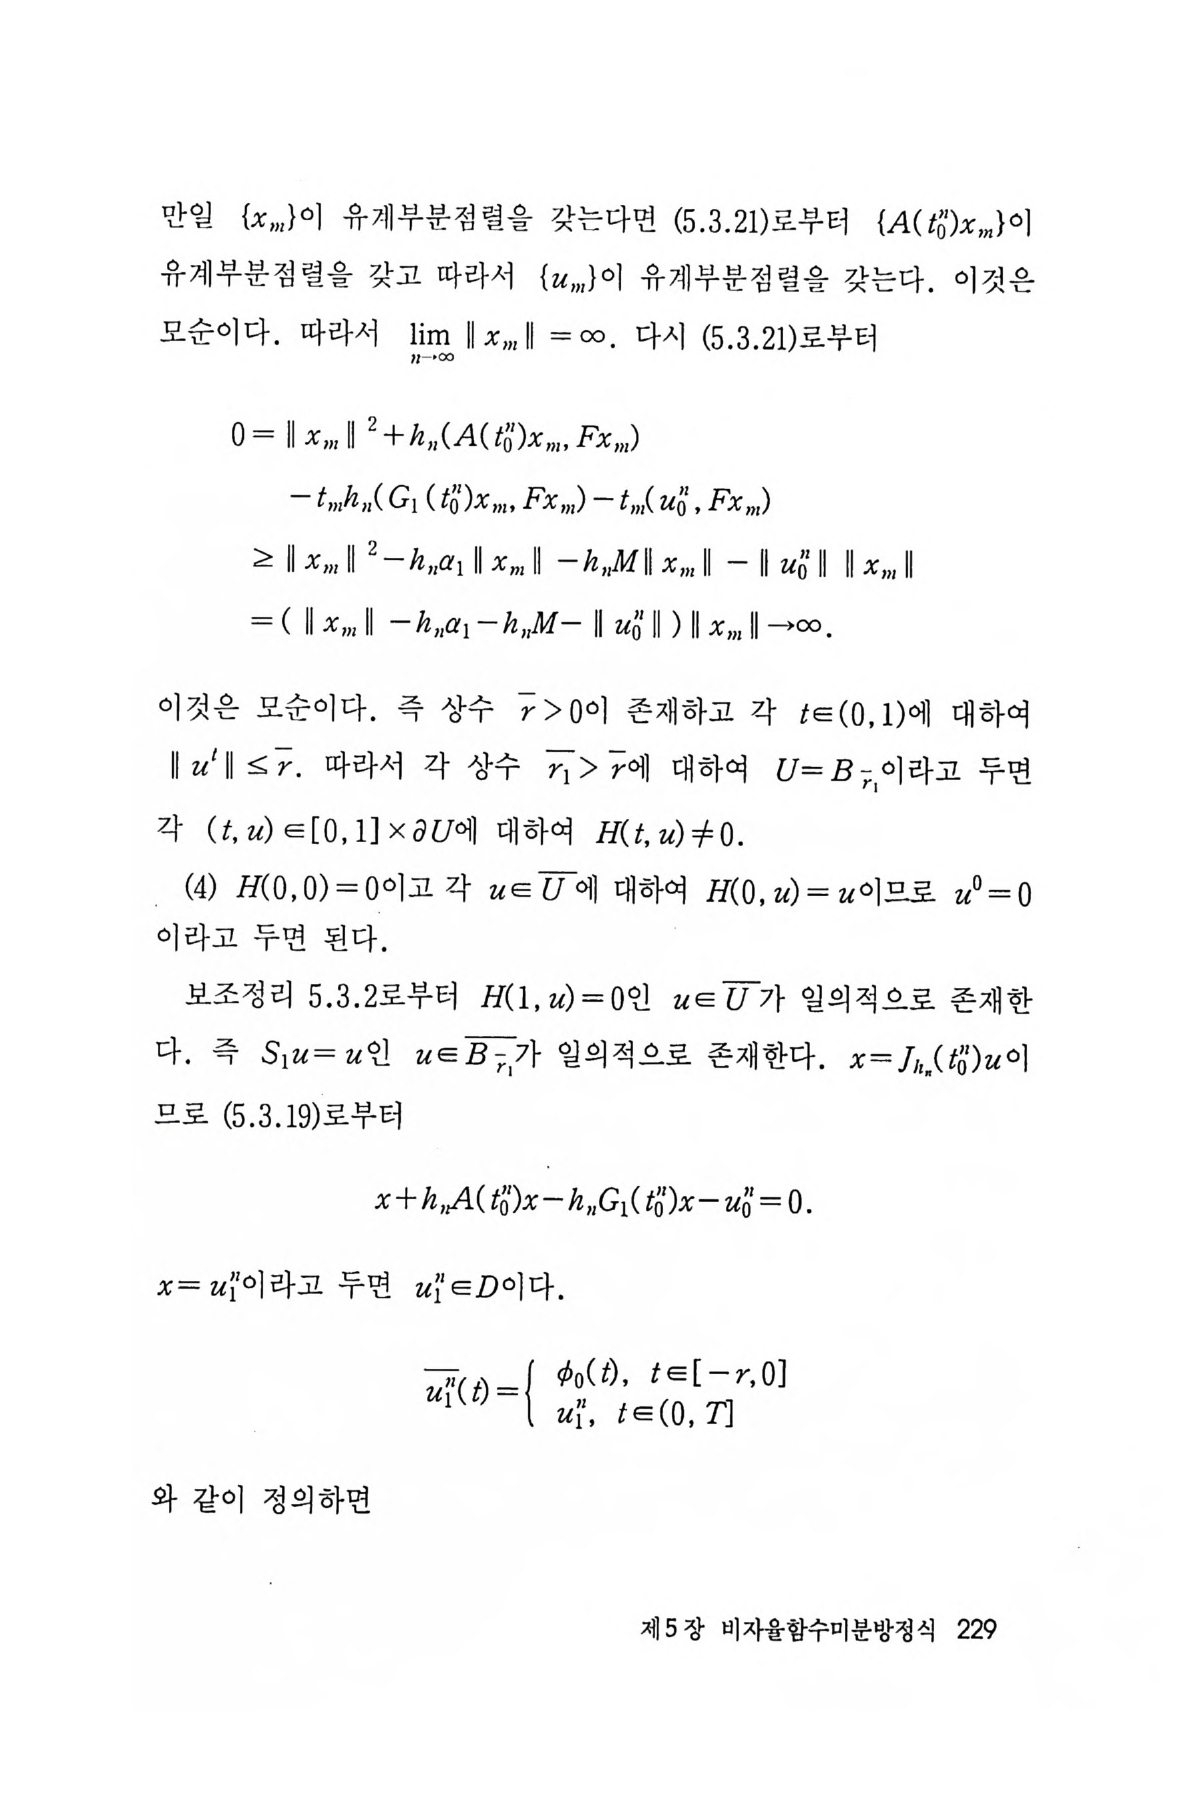 만일 {xₘ}이 유계부분점렬을 갖는다면 (5.3.21)로부터 {A(t₀ⁿ)xₘ}이
유계부분점렬을 갖고 따라서 {uₘ}이 유계부분점렬을 갖는다. 이것은
모순이다. 따라서 lim_{n→∞} ‖xₘ‖ = ∞. 다시 (5.3.21)로부터
0 = ‖xₘ‖² + hₙ(A(t₀ⁿ)xₘ, Fxₘ)
− tₘhₙ(G₁(t₀ⁿ)xₘ, Fxₘ) − tₘ(u₀ⁿ, Fxₘ)
≥ ‖xₘ‖² − hₙα₁‖xₘ‖ − hₙM‖xₘ‖ − ‖u₀ⁿ‖ ‖xₘ‖
= (‖xₘ‖ − hₙα₁ − hₙM − ‖u₀ⁿ‖)‖xₘ‖ → ∞.
이것은 모순이다. 즉 상수 r̅ > 0이 존재하고 각 t∈(0, 1)에 대하여
‖uᵗ‖ ≤ r̅. 따라서 각 상수 r̅₁ > r̅에 대하여 U = B_{r̅₁}이라고 두면
각 (t, u)∈[0, 1]×∂U에 대하여 H(t, u) ≠ 0.
(4) H(0, 0) = 0이고 각 u∈U̅에 대하여 H(0, u) = u이므로 u⁰ = 0
이라고 두면 된다.
보조정리 5.3.2로부터 H(1, u) = 0인 u∈U̅가 일의적으로 존재한
다. 즉 S₁u = u인 u∈\overline{B_{r̅₁}}가 일의적으로 존재한다. x = J_{hₙ}(t₀ⁿ)u이
므로 (5.3.19)로부터
x + hₙA(t₀ⁿ)x − hₙG₁(t₀ⁿ)x − u₀ⁿ = 0.
x = u₁ⁿ이라고 두면 u₁ⁿ∈D이다.
\overline{u₁ⁿ}(t) = { φ₀(t), t∈[−r, 0]
u₁ⁿ, t∈(0, T]
와 같이 정의하면
제5장 비자율함수미분방정식 229